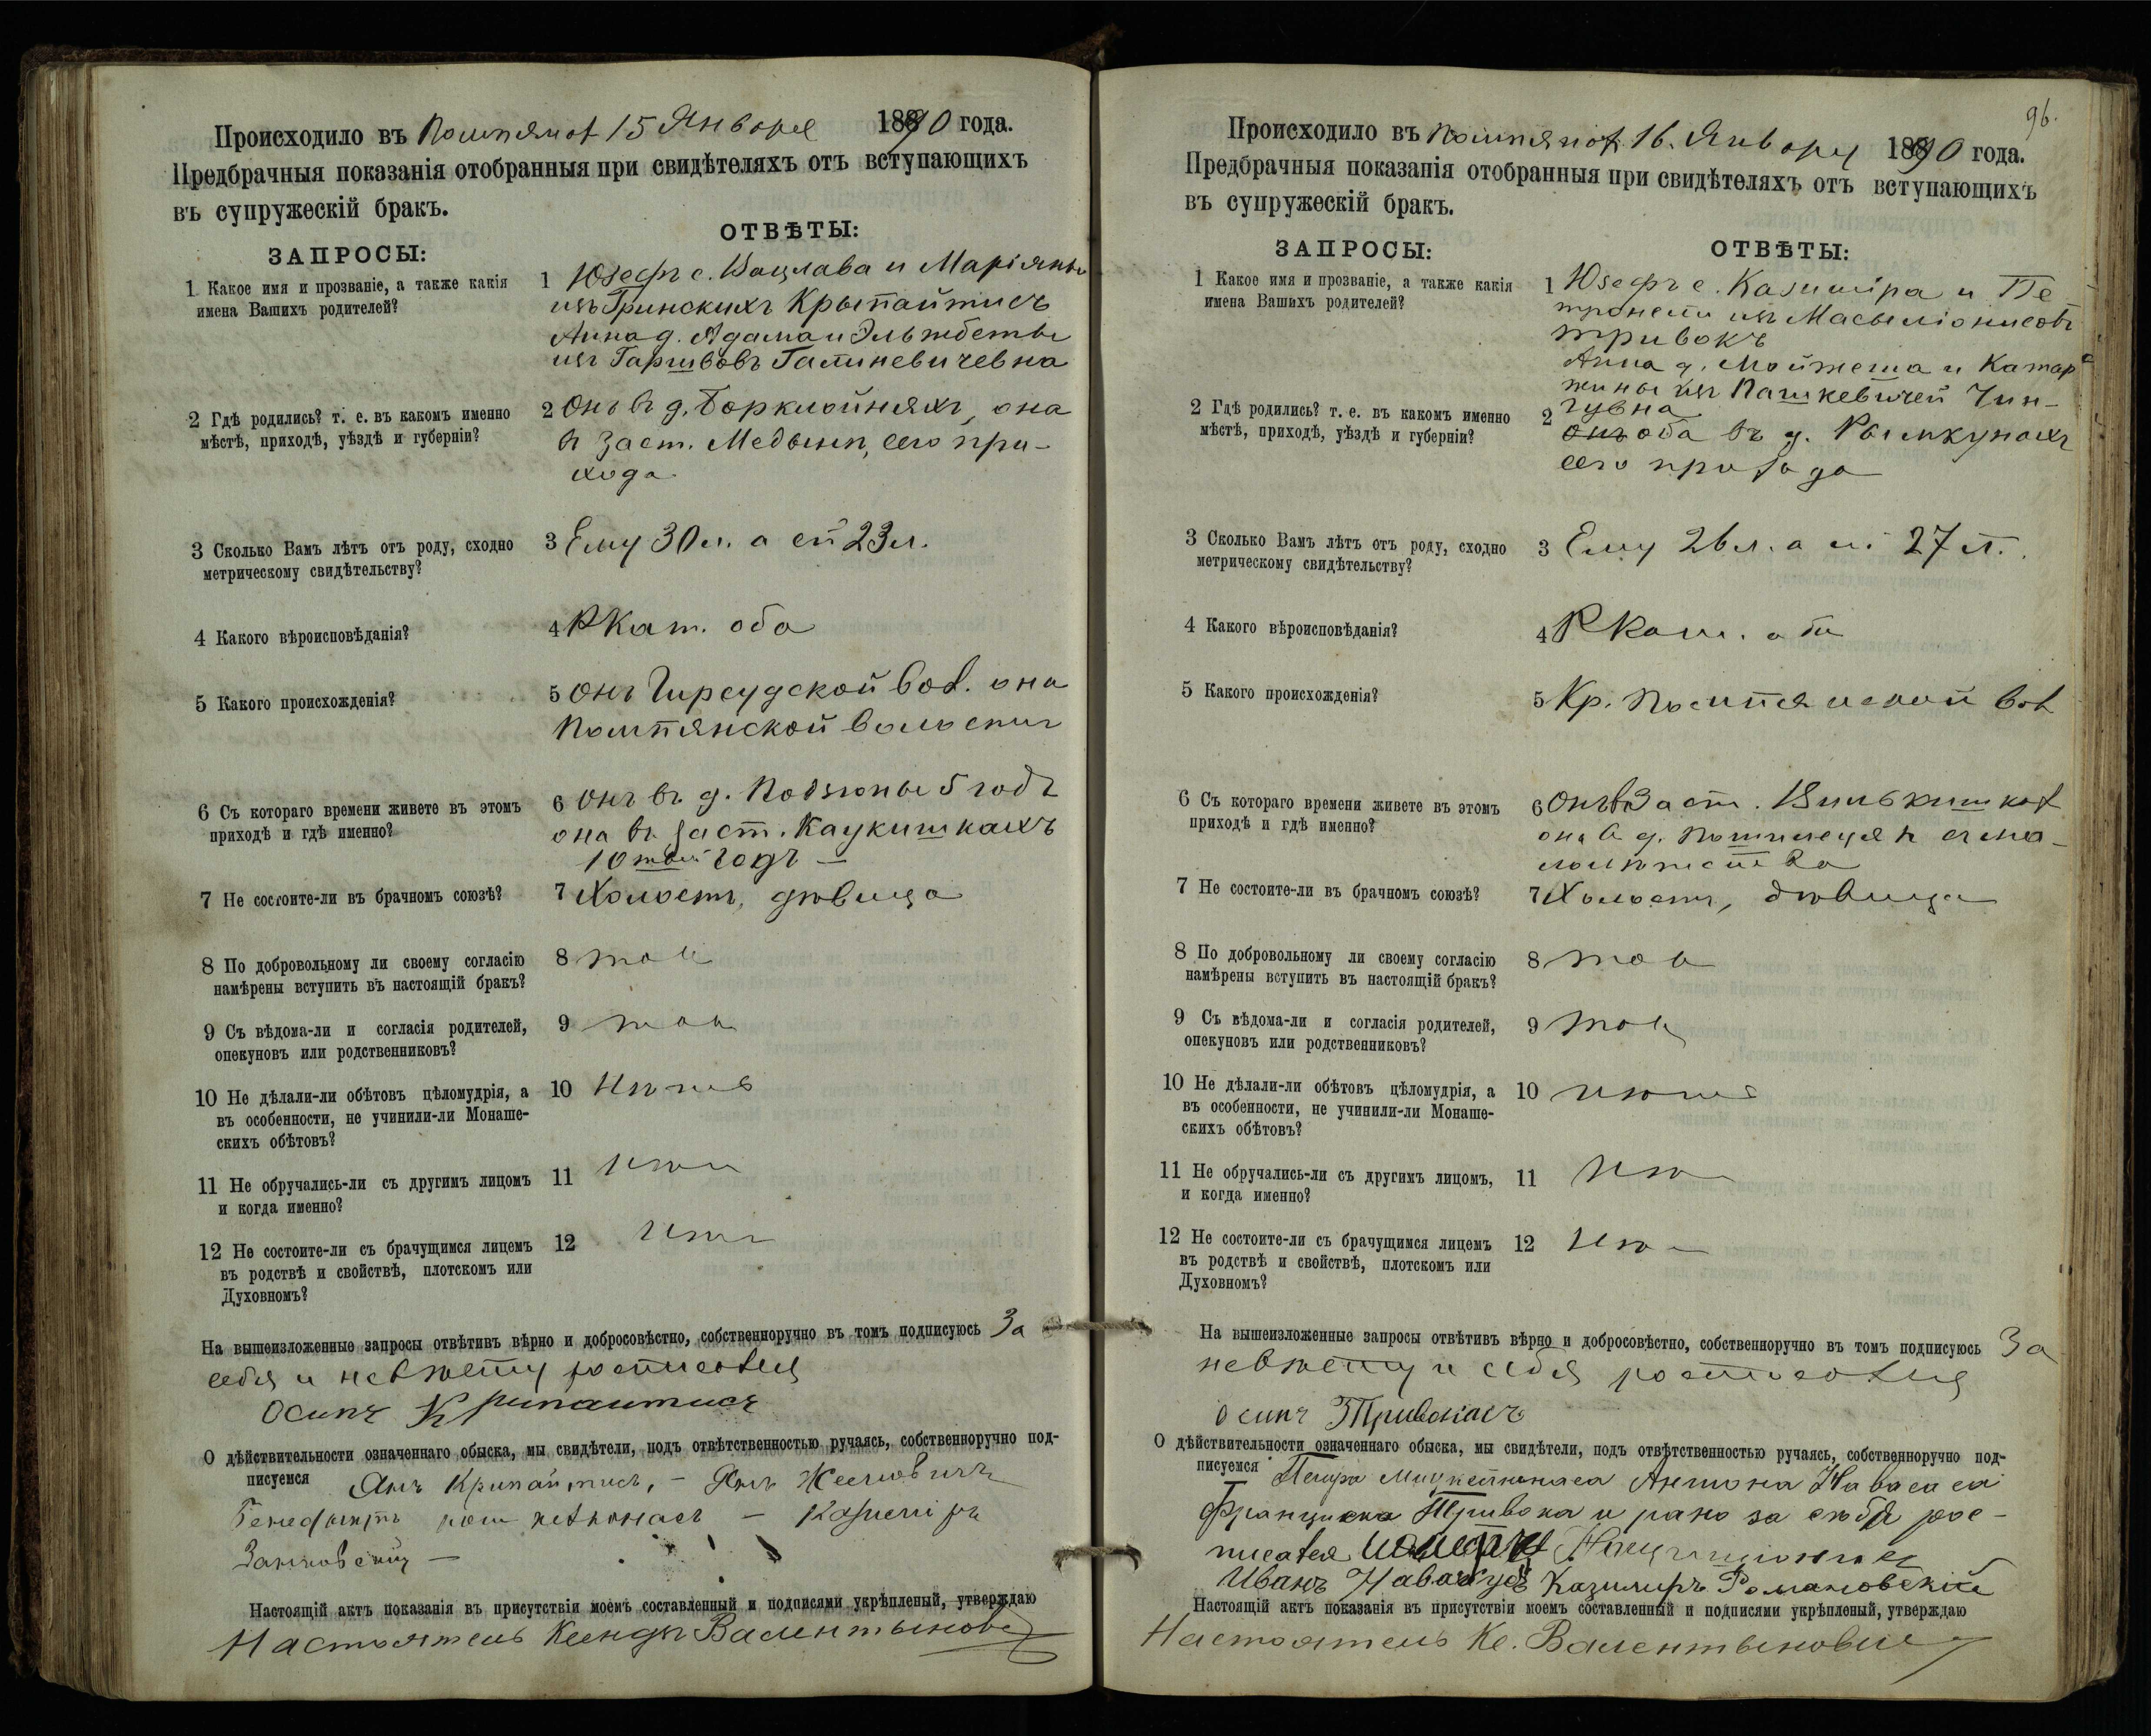 Происходило въ 15 Января 1890 года.
Предбрачныя показанія отобранныя при свидѣтеляхъ отъ вступающихъ
въ супружескій бракъ.
ЗАПРОСЫ:
ОТВѢТЫ:
1 Какое имя и прозваніе, а также какія
имена Вашихъ родителей?
1 Юзефъ с. Вацлава и Маріянны
изъ Гринскихъ Крыпайтисъ
Анна д. Адама и Эльжбеты
изъ Галиневичевна
2 Гдѣ родились? т. е. въ какомъ именно
мѣстѣ, приходѣ, уѣздѣ и губерніи?
2 Онъ въ д. она
в заст. сего при-
хода
3 Сколько Вамъ лѣтъ отъ роду, сходно
метрическому свидѣтельству?
3 Ему 30 л. а ей 23 л.
4 Какого вѣроисповѣданія?
4 РКат. оба
5 Какого происхожденія?
5 Онъ Гирсудской вол. она
волости
6 Съ котораго времени живете въ этомъ
приходѣ и гдѣ именно?
6 Онъ въ д. 5 годъ
она въ заст. Каукишкахъ
10 годъ —
7 Не состоите-ли въ брачномъ союзѣ?
7 Холостъ, дѣвица
8 По добровольному ли своему согласію
намѣрены вступить въ настоящій бракъ?
8 такъ
9 Съ вѣдома-ли и согласія родителей,
опекуновъ или родственниковъ?
9 такъ
10 Не дѣлали-ли обѣтовъ цѣломудрія, а
въ особенности, не учинили-ли Монаше-
скихъ обѣтовъ?
10 нѣтъ
11 Не обручались-ли съ другимъ лицомъ
и когда именно?
11 нѣтъ
12 Не состоите-ли съ брачущимся лицемъ
въ родствѣ и свойствѣ, плотскомъ или
Духовномъ?
12 нѣтъ
На вышеизложенные запросы отвѣтивъ вѣрно и добросовѣстно, собственноручно въ томъ подписуюсь За
себя и невѣсту росписался
Осипъ Крипаитисъ
О дѣйствительности означеннаго обыска, мы свидѣтели, подъ отвѣтственностью ручаясь, собственноручно под-
писуемся Янъ Крипайтисъ, — Янъ
— Казимiръ
Настоящій актъ показанія въ присутствіи моемъ составленный и подписями укрѣпленый, утверждаю
Настоятель Ксендзъ Валентыновичъ
96.
Происходило въ 16. Января 1890 года.
Предбрачныя показанія отобранныя при свидѣтеляхъ отъ вступающихъ
въ супружескій бракъ.
ЗАПРОСЫ:
ОТВѢТЫ:
1 Какое имя и прозваніе, а также какія
имена Вашихъ родителей?
1 Юзефъ с. Казиміра и Пе
тронели изъ
Тривокъ
Анна д. Мойжеша и Катар
жины изъ Пашкевичей Чин-
гувна
2 Гдѣ родились? т. е. въ какомъ именно
мѣстѣ, приходѣ, уѣздѣ и губерніи?
2 оба въ д. Рымкунахъ
сего прихода
3 Сколько Вамъ лѣтъ отъ роду, сходно
метрическому свидѣтельству?
3 Ему 26 л. а ей 27 л.
4 Какого вѣроисповѣданія?
4 РКат. оба
5 Какого происхожденія?
5 Кр. вол
6 Съ котораго времени живете въ этомъ
приходѣ и гдѣ именно?
6 Онъ въ Заст.
она в д. съ ма-
лолѣтства
7 Не состоите-ли въ брачномъ союзѣ?
7 Холостъ, дѣвица
8 По добровольному ли своему согласію
намѣрены вступить въ настоящій бракъ?
8 такъ
9 Съ вѣдома-ли и согласія родителей,
опекуновъ или родственниковъ?
9 такъ
10 Не дѣлали-ли обѣтовъ цѣломудрія, а
въ особенности, не учинили-ли Монаше-
скихъ обѣтовъ?
10 нѣтъ
11 Не обручались-ли съ другимъ лицомъ,
и когда именно?
11 нѣтъ
12 Не состоите-ли съ брачущимся лицемъ
въ родствѣ и свойствѣ, плотскомъ или
Духовномъ?
12 нѣтъ
На вышеизложенные запросы отвѣтивъ вѣрно и добросовѣстно, собственноручно въ томъ подписуюсь За
невѣсту и себя росписался
Осипъ Тривокасъ
О дѣйствительности означеннаго обыска, мы свидѣтели, подъ отвѣтственностью ручаясь, собственноручно под-
писуемся Петра Антона
Францишка Тривока и за себя рос-
писался
Иванъ Казимиръ Романовскій
Настоящій актъ показанія въ присутствіи моемъ составленный и подписями укрѣпленый, утверждаю
Настоятель Кс. Валентыновичъ